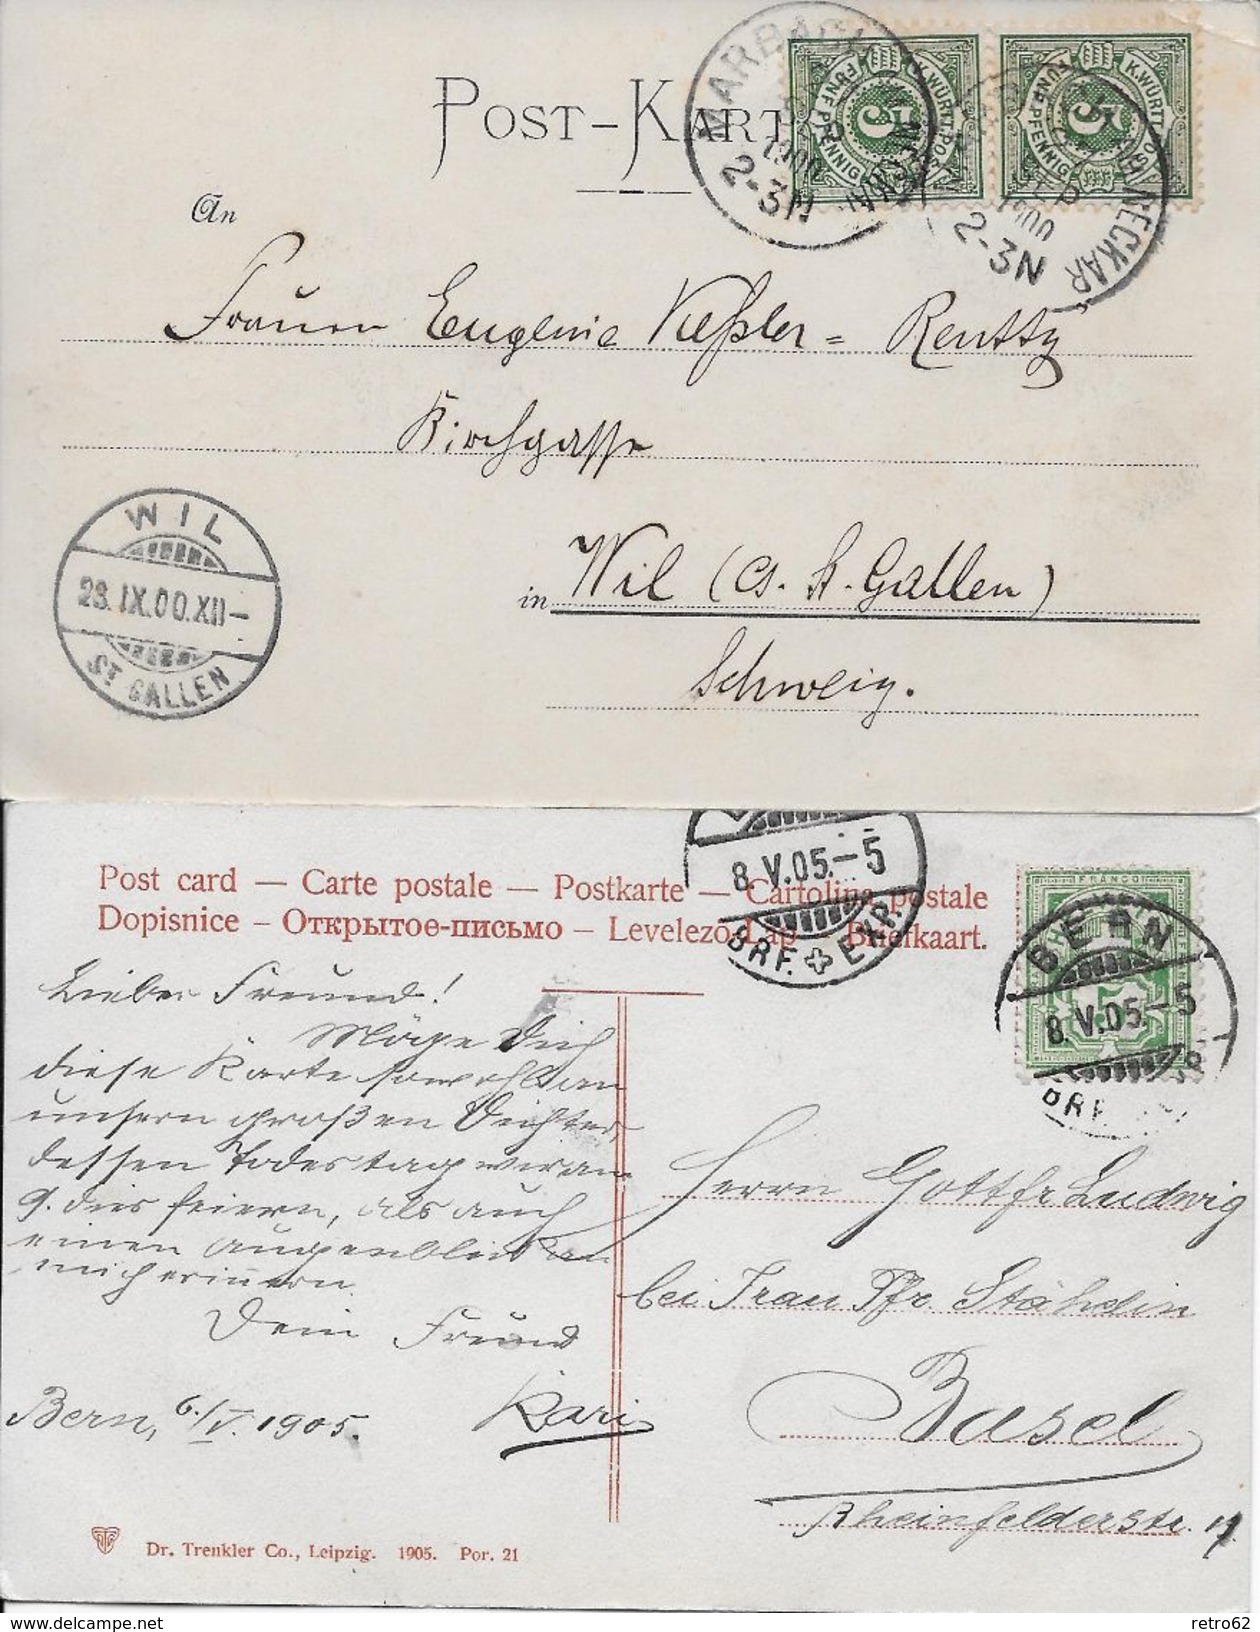 POST-KARTE
MARBACH NECKAR
SEP
1900
2-3N
K.WÜRTT.POST
FÜNF PFENNIG
5
K.WÜRTT.POST
FÜNF PFENNIG
5
NECKAR
SEP
1900
2-3N
An
Frauen Eugenie Keßler = Rentsz
Kirchgasse
in Wil (Ct. St. Gallen)
Schweiz.
WIL
28.IX.00.XII-
ST GALLEN
8.V.05.-5
BRF. EXP.
Post card — Carte postale — Postkarte — Cartolina postale
Dopisnice – Открытое-письмо – Levelező-Lap – Briefkaart.
FRANCO
5
BERN
8.V.05.-5
BRF.
Lieber Freund!
Möge Dich
diese Karte sowohl an
unsern großen Dichter,
dessen Todestag wir am
9. dies feiern, als auch
einen Augenblick an
mich erinnern.
Dein Freund
Kari
Bern, 6./V. 1905.
Herrn Gottfr. Ludwig
bei Frau Pfr. Stähelin
Basel
Rheinfelderstr. 17.
Dr. Trenkler Co., Leipzig. 1905. Por. 21
retro62